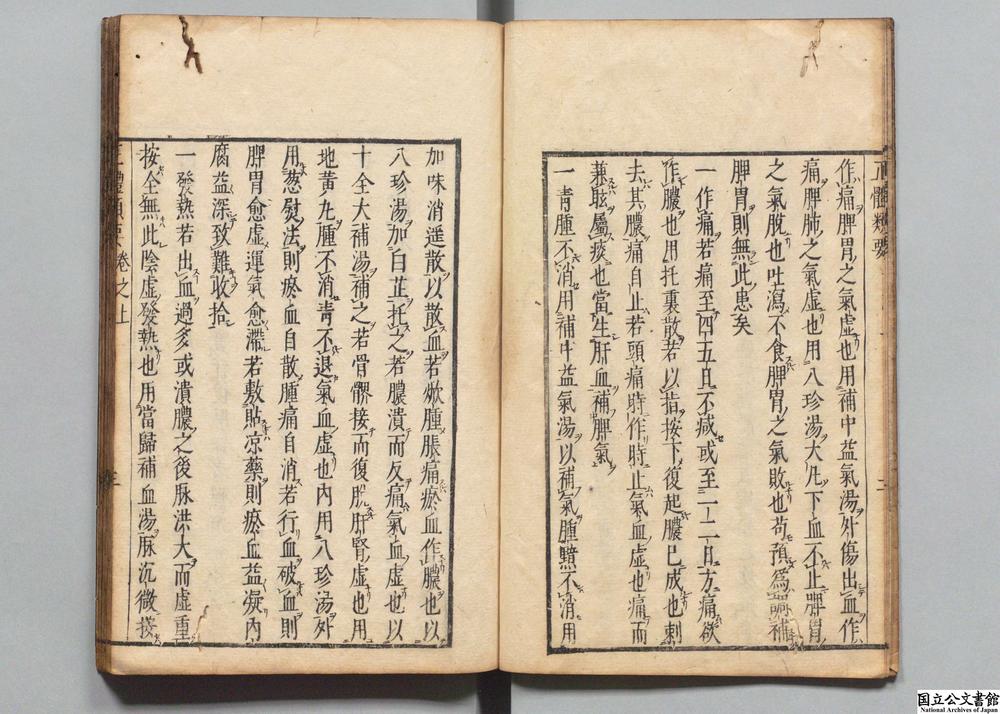 正體類要
作痛脾胃之氣虛也用補中益氣湯外傷出血作
痛脾肺之氣虛也用八珍湯大凡下血不止脾胃
之氣脫也吐瀉不食脾胃之氣敗也苟預爲調補
脾胃則無此患矣
一作痛若痛至四五日不減或至一二日方痛欲
作膿也用托裏散若以指按下復起膿已成也刺
去其膿痛自止若頭痛時作時止氣血虛也痛而
兼眩屬痰也當生肝血補脾氣
一青腫不消用補中益氣湯以補氣腫黯不消用
加味消遥散以散血若焮腫脹痛瘀血作膿也以
八珍湯加白芷托之若膿潰而反痛氣血虛也以
十全大補湯補之若骨髎接而復脫肝腎虛也用
地黃丸腫不消青不退氣血虛也內用八珍湯外
用葱熨法則瘀血自散腫痛自消若行血破血則
脾胃愈虛運氣愈滯若敷貼凉藥則瘀血益凝內
腐益深致難收拾
一發熱若出血過多或潰膿之後脉洪大而虛重
按全無此陰虛發熱也用當歸補血湯脉沉微按
正體類要卷之上
三
国立公文書館
National Archives of Japan